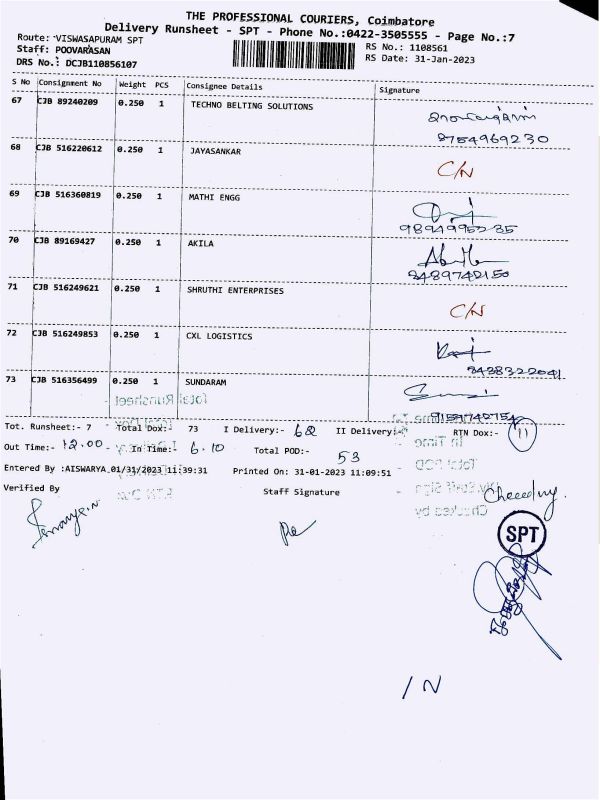 THE PROFESSIONAL COURIERS, Coimbatore
Delivery Runsheet - SPT - Phone No.:0422-3505555 - Page No.:7
Route: VISWASAPURAM SPT
RS No.: 1108561
Staff: POOVARASAN
RS Date: 31-Jan-2023
DRS No.: DCJB110856107
S No Consignment No Weight PCS Consignee Details Signature
67 CJB 89240209 0.250 1 TECHNO BELTING SOLUTIONS
8754969230
68 CJB 516220612 0.250 1 JAYASANKAR C/N
69 CJB 516360819 0.250 1 MATHI ENGG
9894995235
70 CJB 89169427 0.250 1 AKILA
9489742150
71 CJB 516249621 0.250 1 SHRUTHI ENTERPRISES C/N
72 CJB 516249853 0.250 1 CXL LOGISTICS
9438322041
73 CJB 516356499 0.250 1 SUNDARAM
Tot. Runsheet:- 7 Total Dox:- 73 I Delivery:- 62 II Delivery:- RTN Dox:- 11
Out Time:- 12.00 In Time:- 6.10 Total POD:- 53
Entered By :AISWARYA 01/31/2023 11:39:31 Printed On: 31-01-2023 11:09:51
Verified By Staff Signature
SPT
/ N